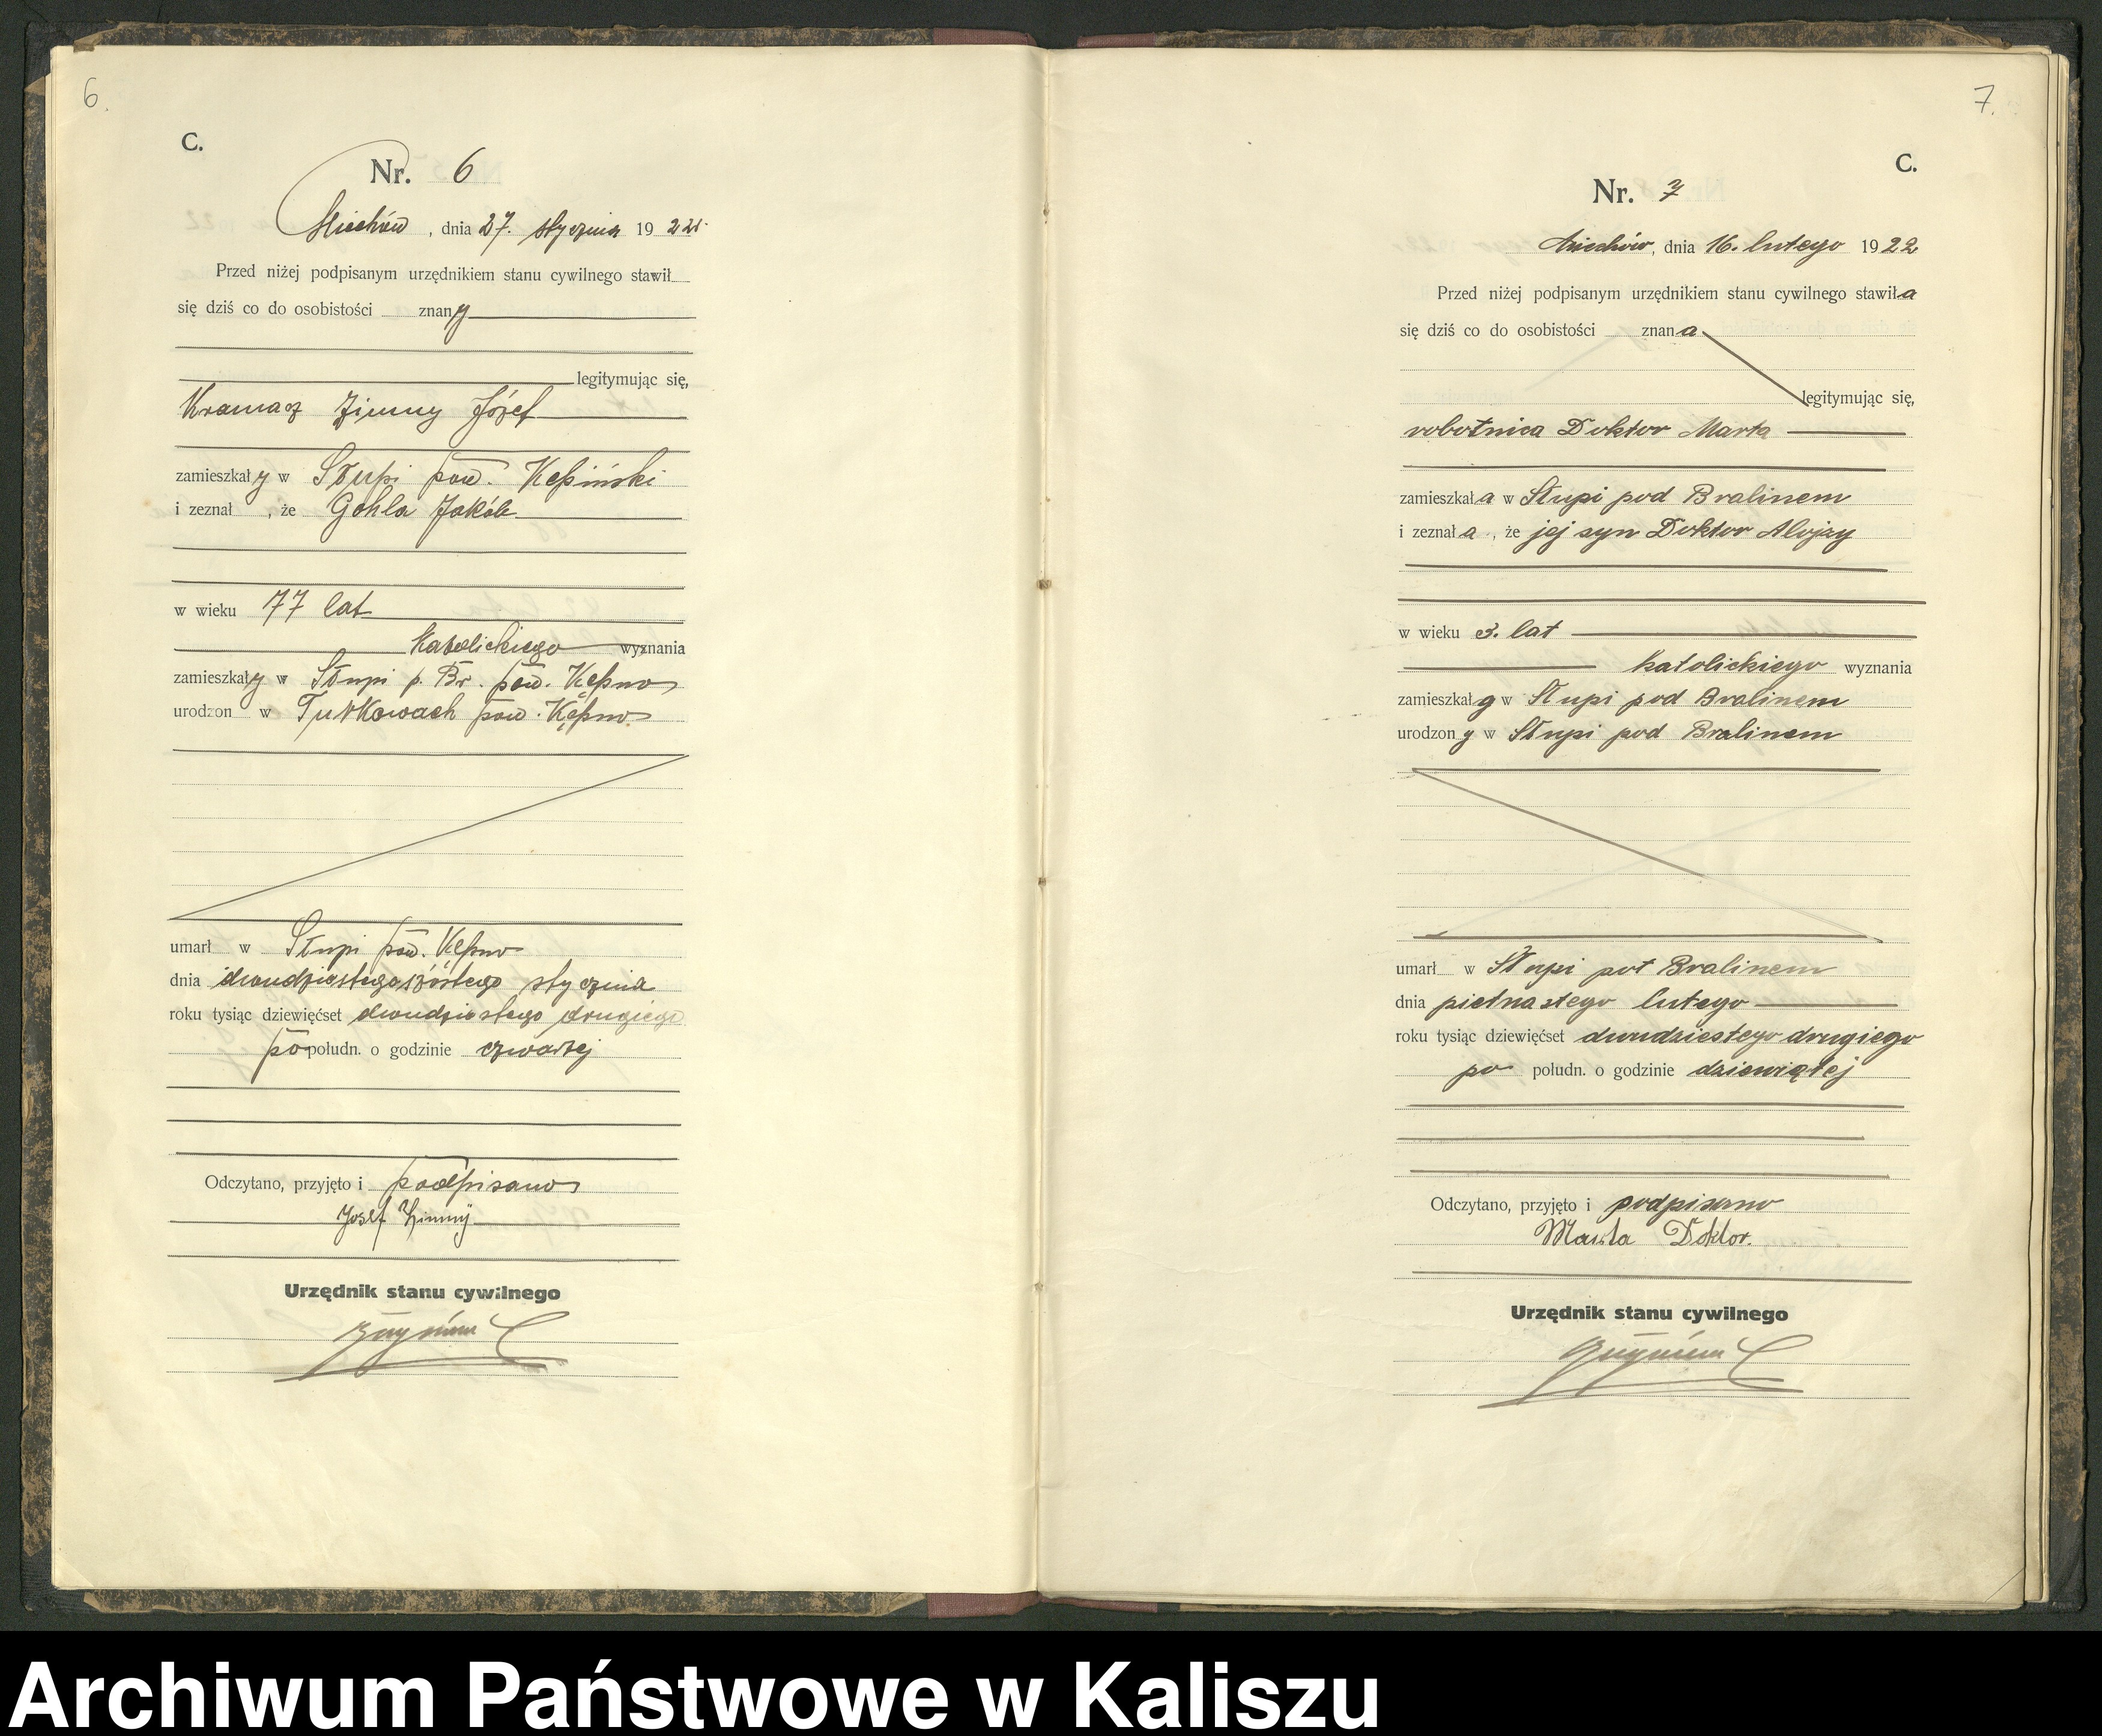 6.
C.
Nr. 6
Miechów, dnia 27. stycznia 1922r.
Przed niżej podpisanym urzędnikiem stanu cywilnego stawił
się dziś co do osobistości znany
legitymując się,
Kramarz Zimny Józef
zamieszkały w Słupi pow. Kępiński
i zeznał , że Gohla Jakób
w wieku 77 lat
katolickiego wyznania
zamieszkały w Słupi p. Br. pow. Kępno
urodzon w Turkowach pow. Kępno
umarł w Słupi pow. Kępno
dnia dwudziestegoszóstego stycznia
roku tysiąc dziewięćset dwudziestego drugiego
po połudn. o godzinie czwartej
Odczytano, przyjęto i podpisano
Josef Zimny
Urzędnik stanu cywilnego
7.
C.
Nr. 7
Miechów, dnia 16. lutego 1922
Przed niżej podpisanym urzędnikiem stanu cywilnego stawiła
się dziś co do osobistości znana
legitymując się,
robotnica Doktor Marta
zamieszkała w Słupi pod Bralinem
i zeznała , że jej syn Doktor Alojzy
w wieku 3. lat
katolickiego wyznania
zamieszkały w Słupi pod Bralinem
urodzony w Słupi pod Bralinem
umarł w Słupi pot Bralinem
dnia pietnastego lutego
roku tysiąc dziewięćset dwudziestego drugiego
po połudn. o godzinie dziewiątej
Odczytano, przyjęto i podpisano
Marta Doktor.
Urzędnik stanu cywilnego
Archiwum Państwowe w Kaliszu